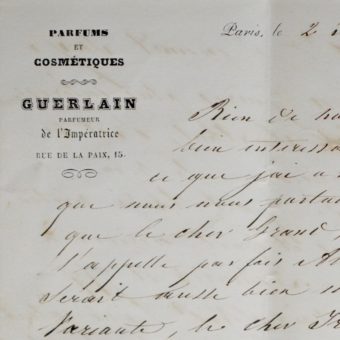 PARFUMS
ET
COSMÉTIQUES
GUERLAIN
PARFUMEUR
de l'Impératrice
RUE DE LA PAIX, 15.
Paris, le 2
Rien de
bien interessa
ce que j'ai a
que nous nous parta
que le cher Grand,
s'appelle parfois
serait aussi bien
Variante, le cher